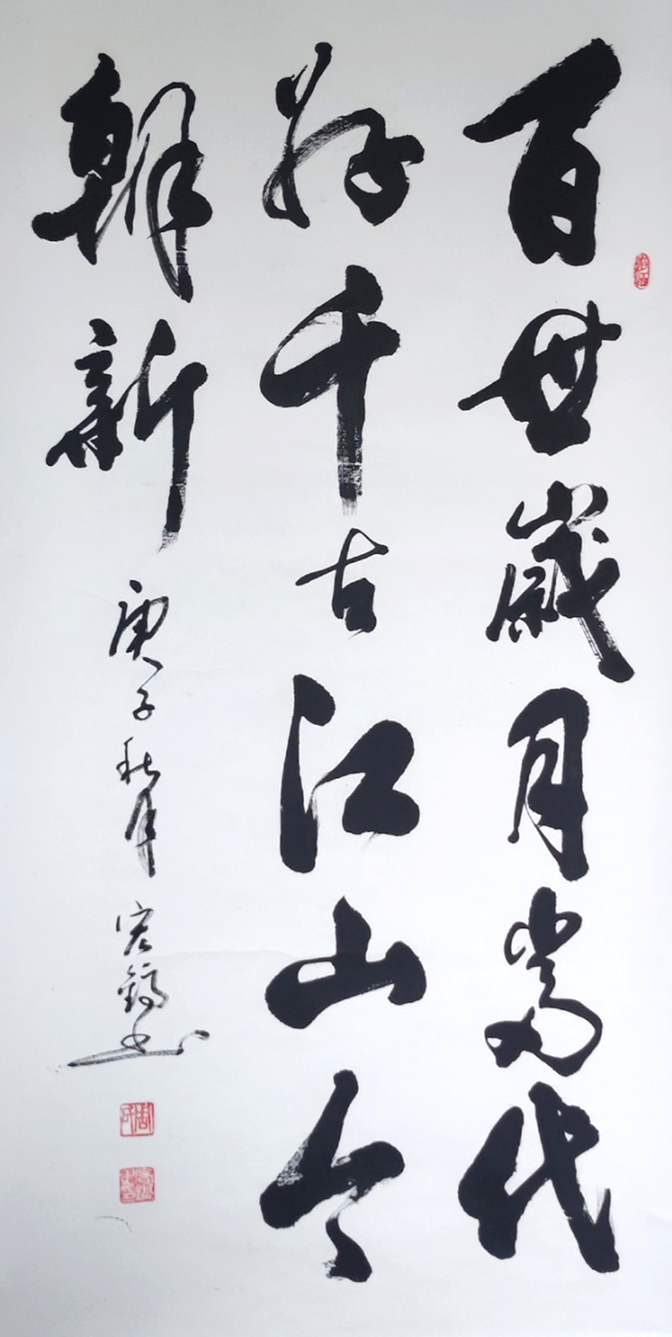 百世歲月當代
好千古江山今
朝新
庚子秋月
宏鎬書